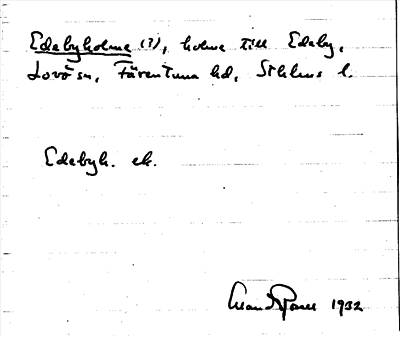 Edebyholme (?), holme till Edeby,
Lovö sn, Färentuna hd, Sthlms l.
Edebyh. ek.
1932